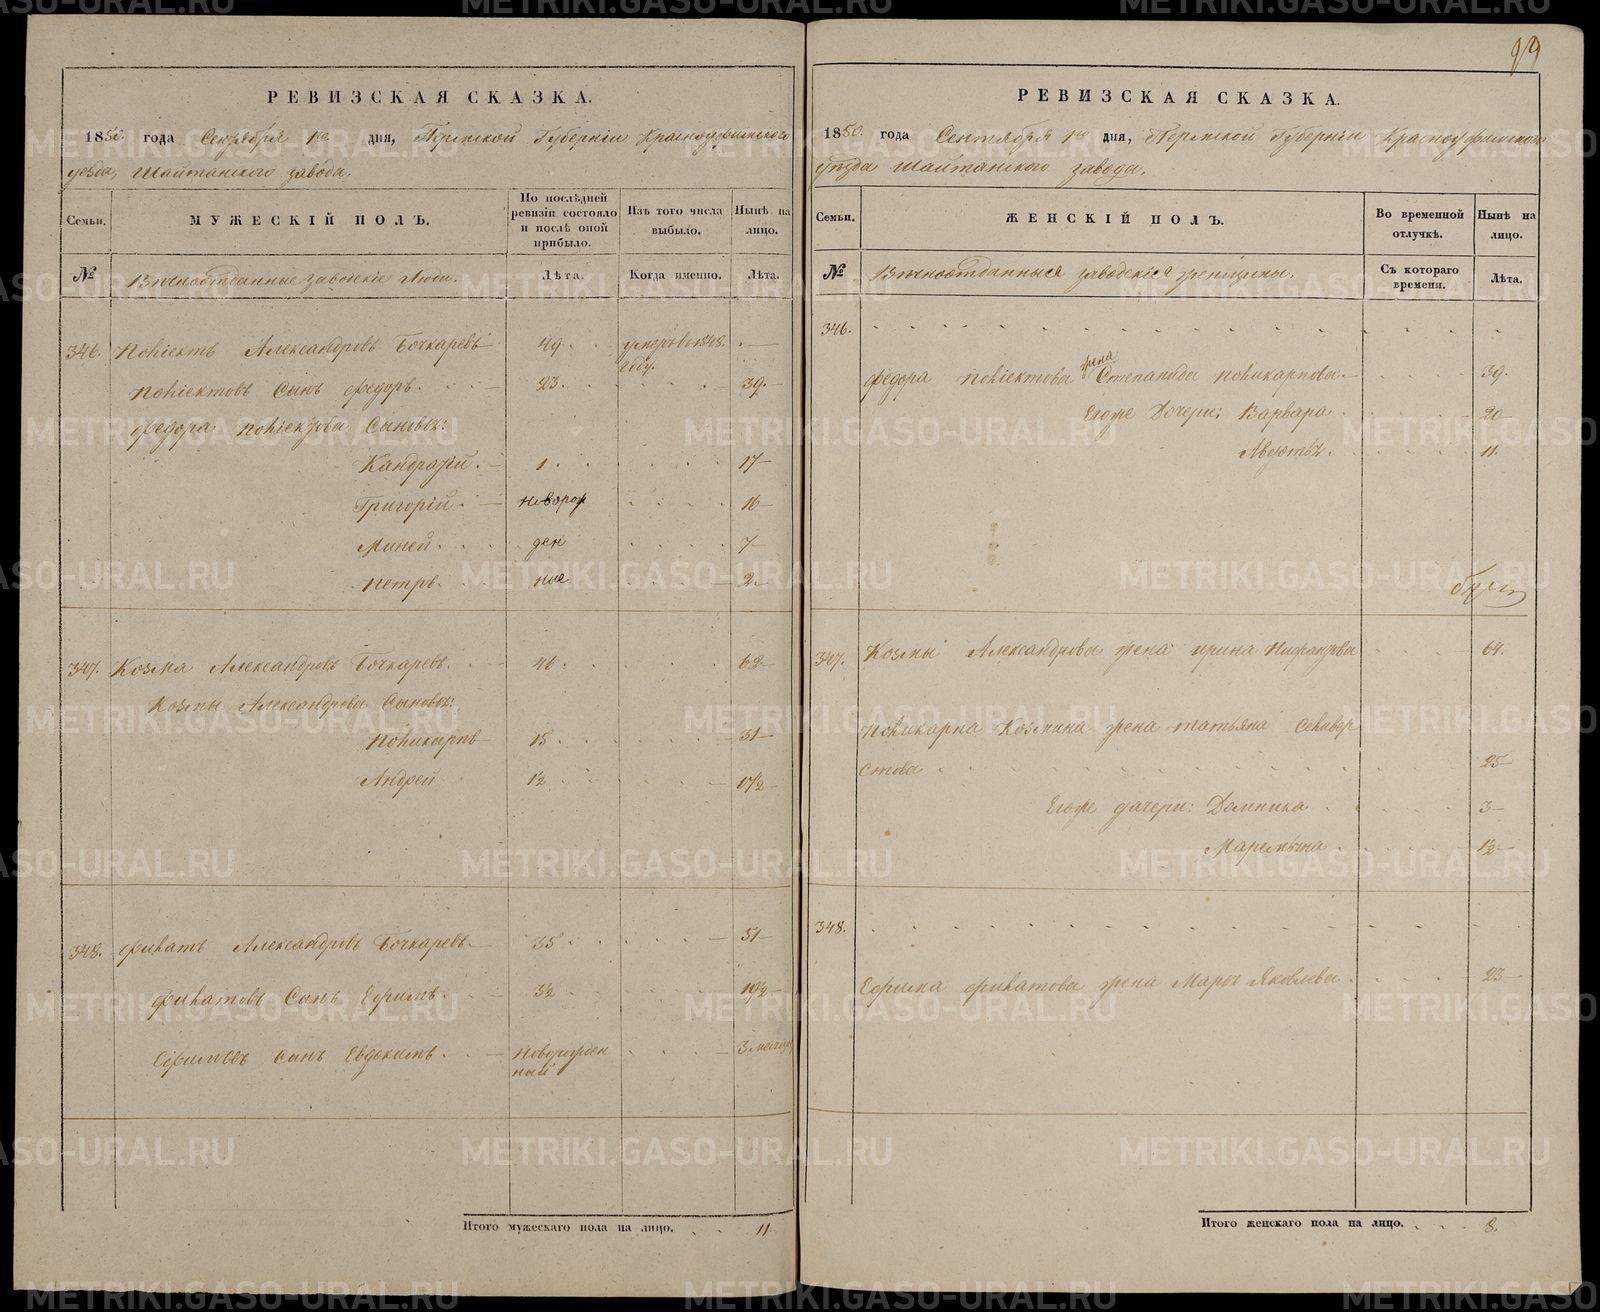 99
РЕВИЗСКАЯ СКАЗКА.
1850 года Сентября 1го дня, Пермской Губернiи Красноуфимского
уезда, Шайтанского завода.
Семьи. МУЖЕСКІЙ ПОЛЪ. По послѣдней ревизіи состояло и послѣ оной прибыло. Изъ того числа выбыло. Нынѣ на лицо.
№ Вѣчноотданные заводскiе Люди. Лѣта. Когда именно. Лѣта.
346. Полiектъ Александровъ Бочкаревъ 49. умеръ въ 1848. году.
Полiектовъ Сынъ Федоръ. 23. 39.
Федора Полiектова Сыновья:
Кандратiй. 1. 17
Григорiй. новорож 16
Миней. ден 7
Петръ. ные 2.
347. Козма Александровъ Бочкаревъ. 46. 62
Козмы Александрова Сыновья:
Поликарпъ 15. 31
Андрей 1/2. 17 1/2
348. Филатъ Александровъ Бочкаревъ. 35. 51
Филатовъ Сынъ Ефимъ. 3 1/2 19 1/2
Ефимовъ Сынъ Евдокимъ. Новорожден
ный 3 месяца
Итого мужескаго пола на лицо. 11
РЕВИЗСКАЯ СКАЗКА.
1850. года Сентября 1го дня, Пермской Губернiи Красноуфимского
уѣзда Шайтанского завода.
Семьи. ЖЕНСКІЙ ПОЛЪ. Во временной отлучкѣ. Нынѣ на лицо.
№ Вѣчноотданныя заводскiя женщины. Съ котораго времени. Лѣта.
346.
Федора Полiектова жена Степанида Поликарпова. 39.
Егоже Дочери: Варвара. 20
Авдотья. 11.
347. Козмы Александрова жена Ирина 64.
Поликарпа Козмина жена Татьяна Селивер
стова 25
Егоже дочери: Домника 3
Маремьяна 1/2
348.
Ефима Филатова жена Марья Яковлева. 23
Итого женскаго пола на лицо. 8.
METRIKI.GASO-URAL.RU